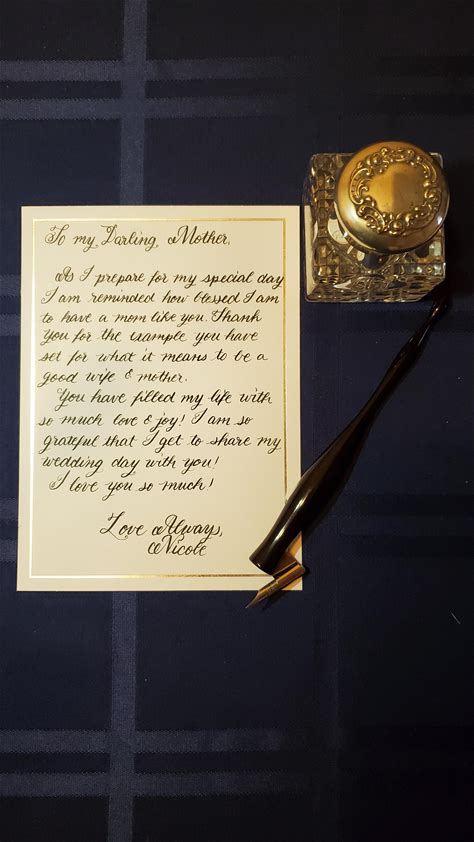 To my Darling, Mother,
As I prepare for my special day
I am reminded how blessed I am
to have a mom like you. Thank
you for the example you have
set for what it means to be a
good wife & mother.
You have filled my life with
so much love & joy! I am so
grateful that I get to share my
wedding day with you!
I love you so much!
Love Always,
Nicole